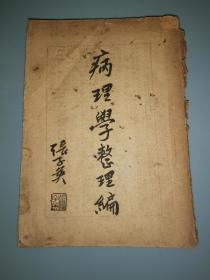 病理學整理編
張子英